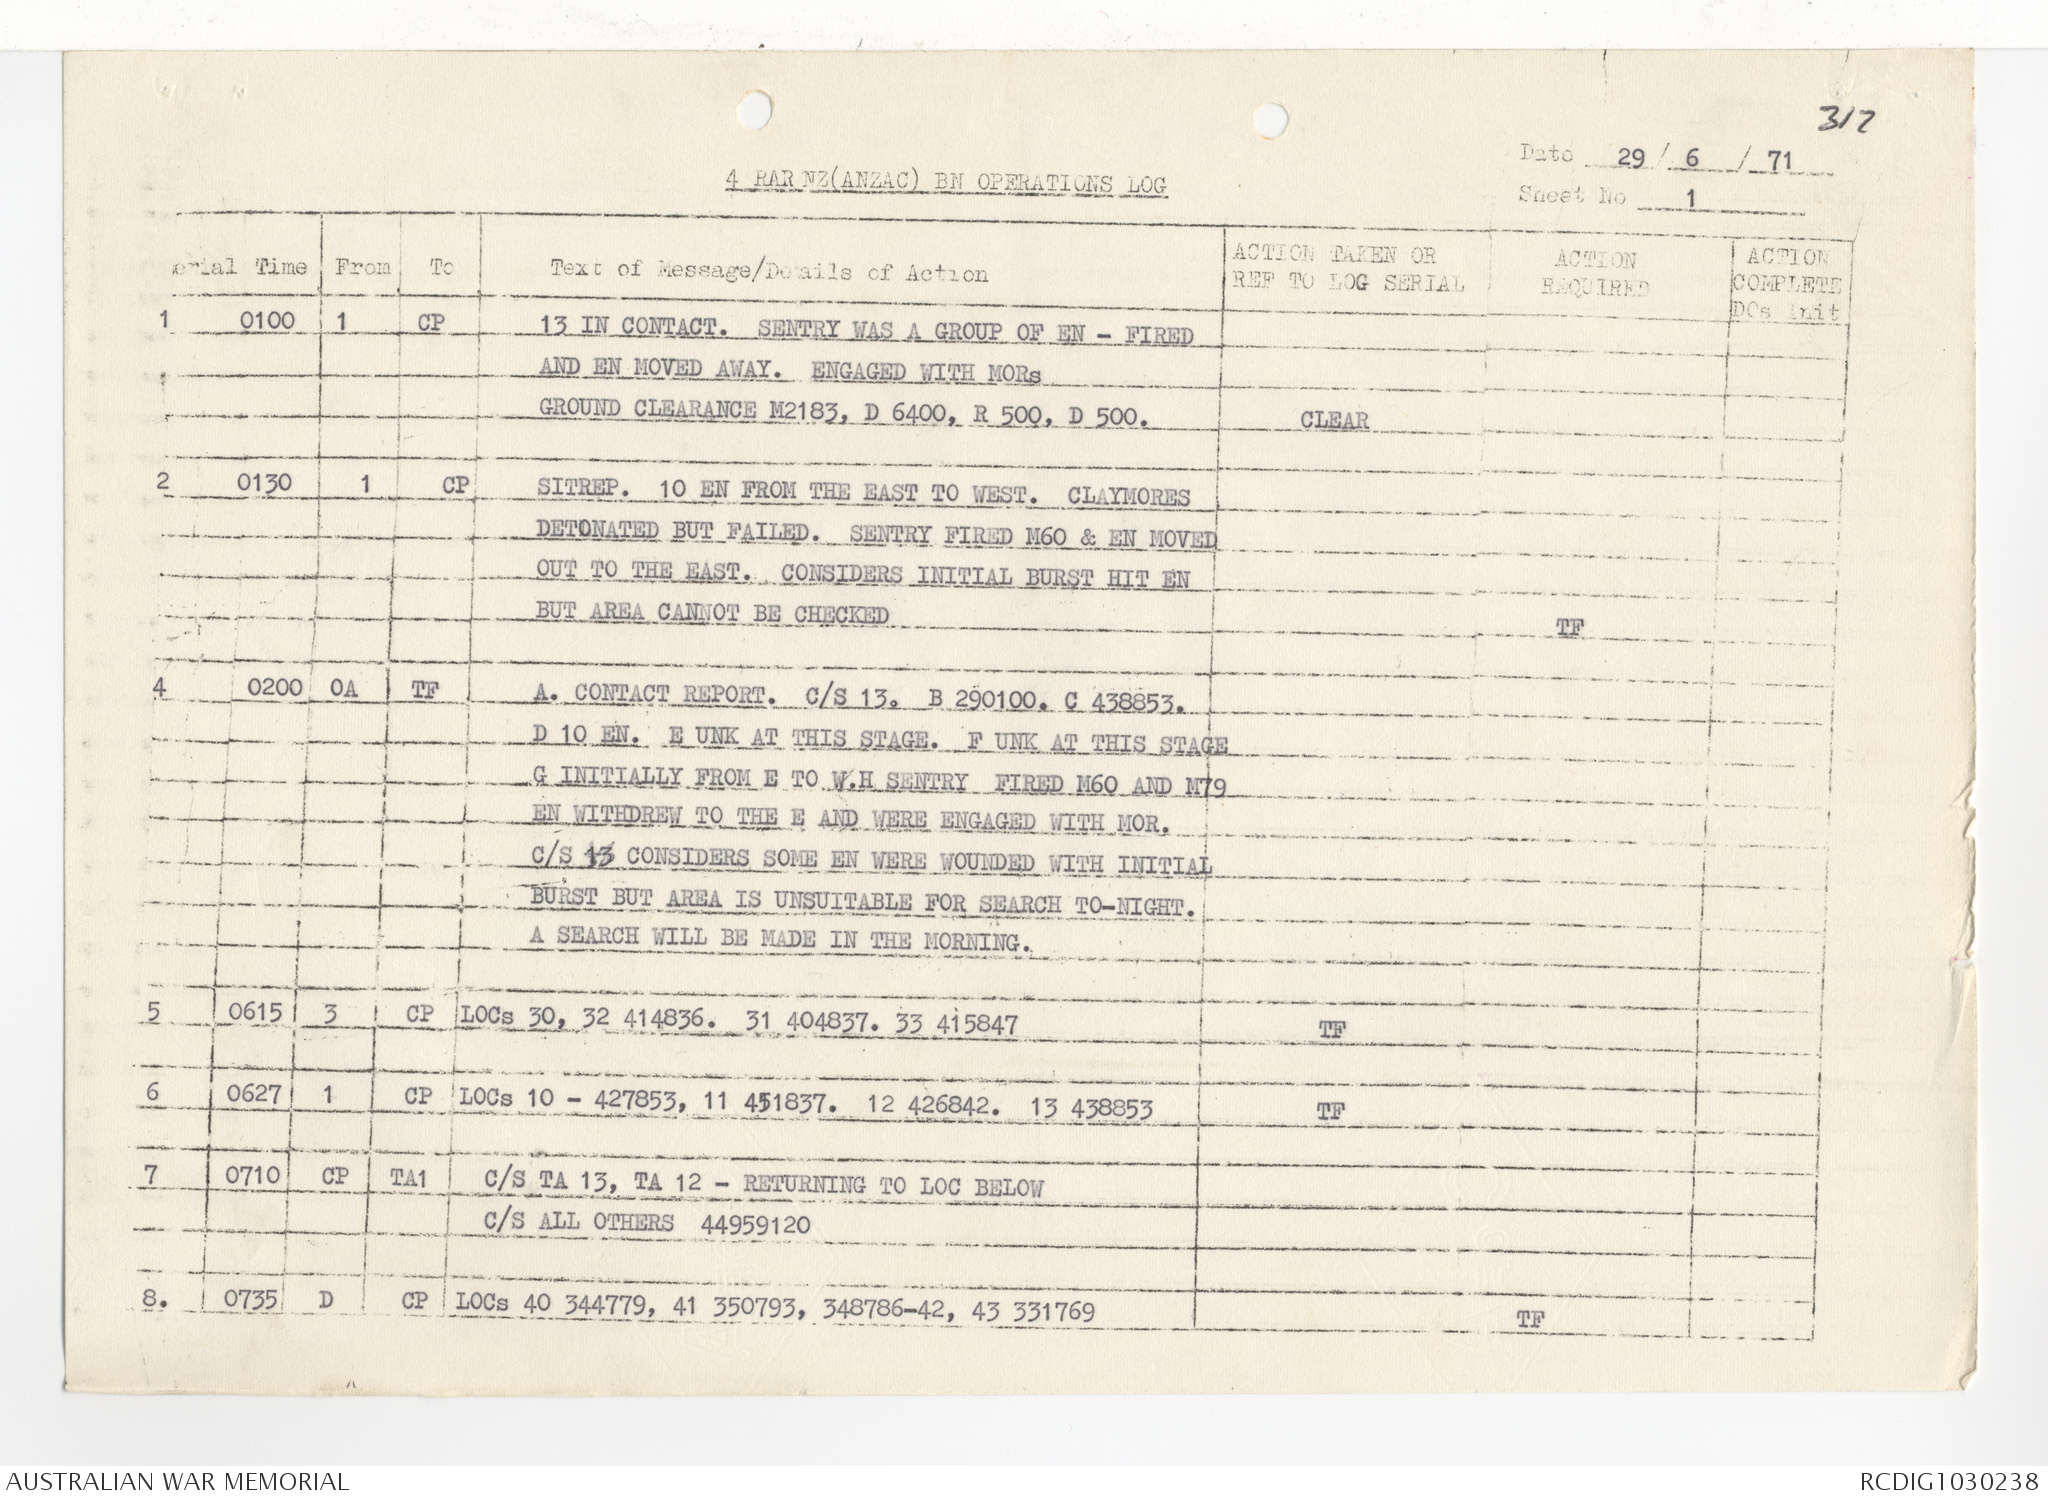 317
Date 29 / 6 / 71
4 RAR NZ(ANZAC) BN OPERATIONS LOG
Sheet No 1
erial Time From To Text of Message/Details of Action ACTION TAKEN OR REF TO LOG SERIAL ACTION REQUIRED ACTION COMPLETE DOs init
1 0100 1 CP 13 IN CONTACT. SENTRY WAS A GROUP OF EN - FIRED
AND EN MOVED AWAY. ENGAGED WITH MORs
GROUND CLEARANCE M2183, D 6400, R 500, D 500. CLEAR
2 0130 1 CP SITREP. 10 EN FROM THE EAST TO WEST. CLAYMORES
DETONATED BUT FAILED. SENTRY FIRED M60 & EN MOVED
OUT TO THE EAST. CONSIDERS INITIAL BURST HIT EN
BUT AREA CANNOT BE CHECKED TF
4 0200 OA TF A. CONTACT REPORT. C/S 13. B 290100. C 438853.
D 10 EN. E UNK AT THIS STAGE. F UNK AT THIS STAGE
G INITIALLY FROM E TO W.H SENTRY FIRED M60 AND M79
EN WITHDREW TO THE E AND WERE ENGAGED WITH MOR.
C/S 13 CONSIDERS SOME EN WERE WOUNDED WITH INITIAL
BURST BUT AREA IS UNSUITABLE FOR SEARCH TO-NIGHT.
A SEARCH WILL BE MADE IN THE MORNING.
5 0615 3 CP LOCs 30, 32 414836. 31 404837. 33 415847 TF
6 0627 1 CP LOCs 10 - 427853, 11 451837. 12 426842. 13 438853 TF
7 0710 CP TA1 C/S TA 13, TA 12 - RETURNING TO LOC BELOW
C/S ALL OTHERS 44959120
8. 0735 D CP LOCs 40 344779, 41 350793, 348786-42, 43 331769 TF
AUSTRALIAN WAR MEMORIAL RCDIG1030238